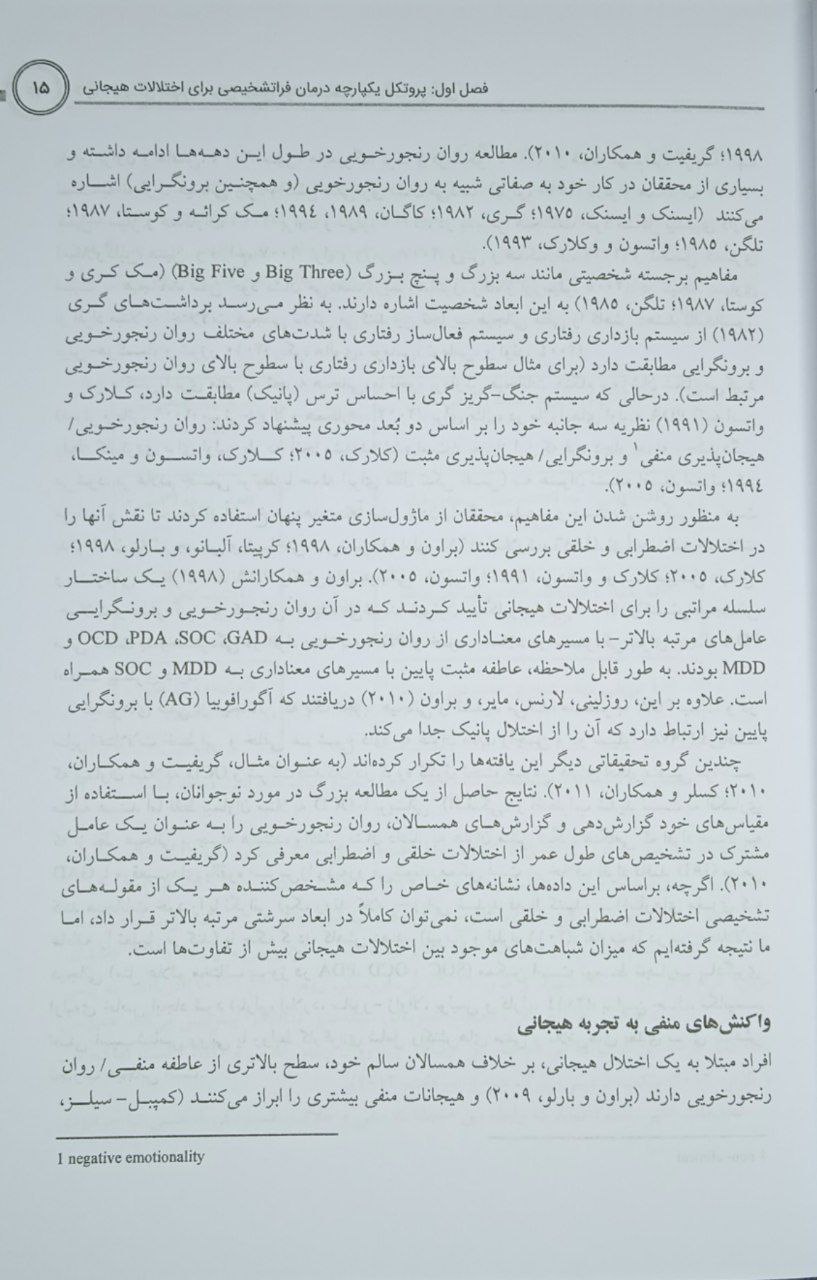 فصل اول: پروتکل یکپارچه درمان فراتشخیصی برای اختلالات هیجانی
۱۵
۱۹۹۸؛ گریفیت و همکاران، ۲۰۱۰). مطالعه روان رنجورخویی در طول این دهه‌ها ادامه داشته و
بسیاری از محققان در کار خود به صفاتی شبیه به روان رنجورخویی (و همچنین برونگرایی) اشاره
می‌کنند (ایسنک و ایسنک، ۱۹۷۵؛ گری، ۱۹۸۲؛ کاگان، ۱۹۸۹، ۱۹۹۴؛ مک کرائه و کوستا، ۱۹۸۷؛
تلگن، ۱۹۸۵؛ واتسون و وکلارک، ۱۹۹۳).
مفاهیم برجسته شخصیتی مانند سه بزرگ و پنچ بزرگ (Big Three و Big Five) (مک کری و
کوستا، ۱۹۸۷؛ تلگن، ۱۹۸۵) به این ابعاد شخصیت اشاره دارند. به نظر می‌رسد برداشت‌های گری
(۱۹۸۲) از سیستم بازداری رفتاری و سیستم فعال‌ساز رفتاری با شدت‌های مختلف روان رنجورخویی
و برونگرایی مطابقت دارد (برای مثال سطوح بالای بازداری رفتاری با سطوح بالای روان رنجورخویی
مرتبط است). درحالی که سیستم جنگ-گریز گری با احساس ترس (پانیک) مطابقت دارد، کلارک و
واتسون (۱۹۹۱) نظریه سه جانبه خود را بر اساس دو بُعد محوری پیشنهاد کردند: روان رنجورخویی/
هیجان‌پذیری منفی۱ و برونگرایی/ هیجان‌پذیری مثبت (کلارک، ۲۰۰۵؛ کلارک، واتسون و مینکا،
۱۹۹۴؛ واتسون، ۲۰۰۵).
به منظور روشن شدن این مفاهیم، محققان از ماژول‌سازی متغیر پنهان استفاده کردند تا نقش آنها را
در اختلالات اضطرابی و خلقی بررسی کنند (براون و همکاران، ۱۹۹۸؛ کرپیتا، آلبانو، و بارلو، ۱۹۹۸؛
کلارک، ۲۰۰۵؛ کلارک و واتسون، ۱۹۹۱؛ واتسون، ۲۰۰۵). براون و همکارانش (۱۹۹۸) یک ساختار
سلسله مراتبی را برای اختلالات هیجانی تأیید کردند که در آن روان رنجورخویی و برونگرایی
عامل‌های مرتبه بالاتر- با مسیرهای معناداری از روان رنجورخویی به OCD ،PDA ،SOC ،GAD و
MDD بودند. به طور قابل ملاحظه، عاطفه مثبت پایین با مسیرهای معناداری به MDD و SOC همراه
است. علاوه بر این، روزلینی، لارنس، مایر، و براون (۲۰۱۰) دریافتند که آگورافوبیا (AG) با برونگرایی
پایین نیز ارتباط دارد که آن را از اختلال پانیک جدا می‌کند.
چندین گروه تحقیقاتی دیگر این یافته‌ها را تکرار کرده‌اند (به عنوان مثال، گریفیت و همکاران،
۲۰۱۰؛ کسلر و همکاران، ۲۰۱۱). نتایج حاصل از یک مطالعه بزرگ در مورد نوجوانان، با استفاده از
مقیاس‌های خود گزارش‌دهی و گزارش‌های همسالان، روان رنجورخویی را به عنوان یک عامل
مشترک در تشخیص‌های طول عمر از اختلالات خلقی و اضطرابی معرفی کرد (گریفیت و همکاران،
۲۰۱۰). اگرچه، براساس این داده‌ها، نشانه‌های خاص را که مشخص‌کننده هر یک از مقوله‌های
تشخیصی اختلالات اضطرابی و خلقی است، نمی‌توان کاملاً در ابعاد سرشتی مرتبه بالاتر قرار داد، اما
ما نتیجه گرفته‌ایم که میزان شباهت‌های موجود بین اختلالات هیجانی بیش از تفاوت‌ها است.
واکنش‌های منفی به تجربه هیجانی
افراد مبتلا به یک اختلال هیجانی، بر خلاف همسالان سالم خود، سطح بالاتری از عاطفه منفی/ روان
رنجورخویی دارند (براون و بارلو، ۲۰۰۹) و هیجانات منفی بیشتری را ابراز می‌کنند (کمپبل- سیلز،
1 negative emotionality